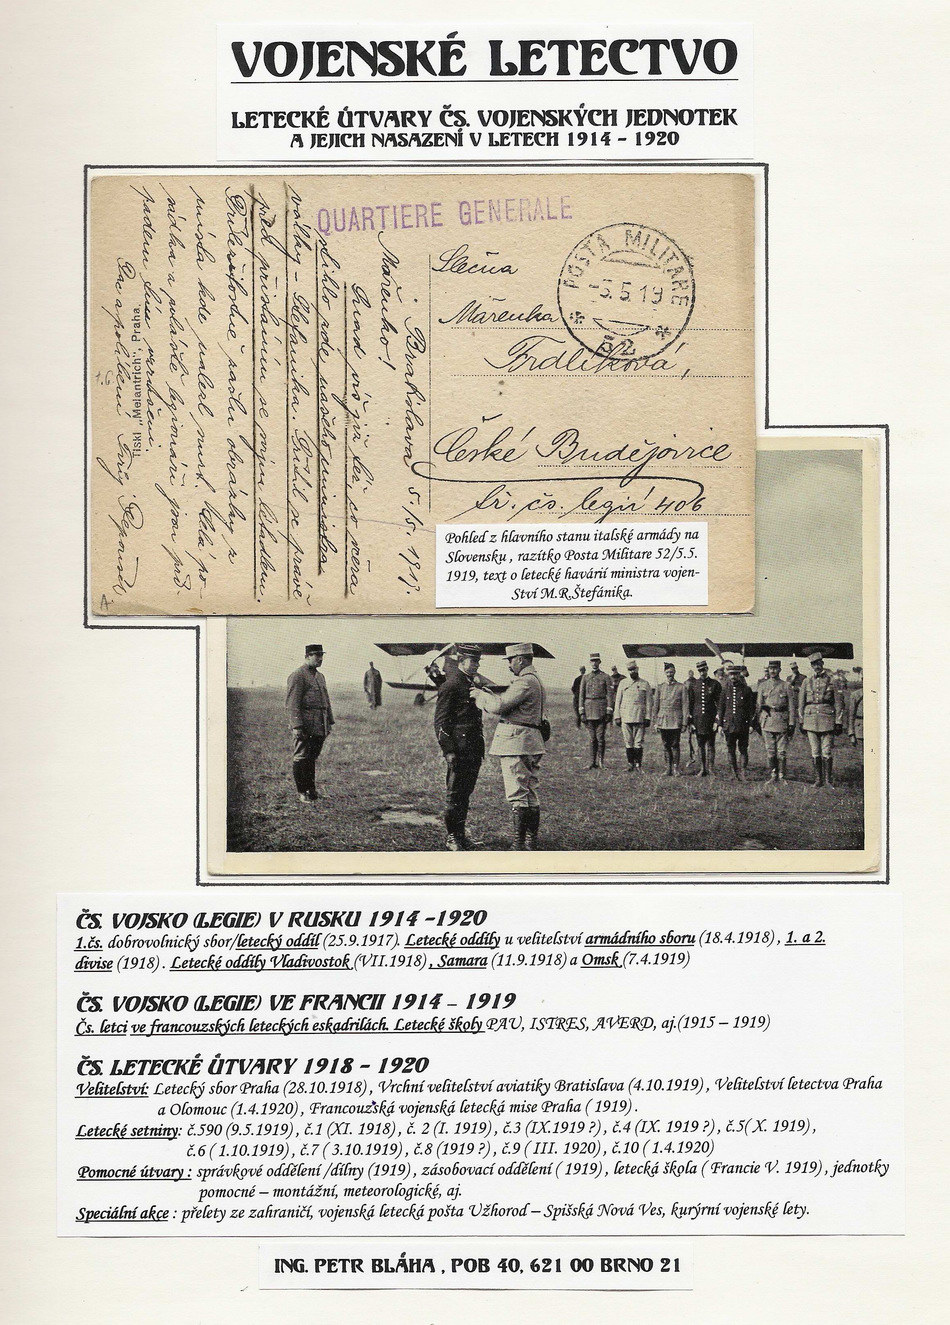 VOJENSKÉ LETECTVO
LETECKÉ ÚTVARY ČS. VOJENSKÝCH JEDNOTEK
A JEJICH NASAZENÍ V LETECH 1914 – 1920
QUARTIERE GENERALE
POSTA MILITARE
-5.5.19
52
Slečna
Mářenka
Frdlíková,
České Budějovice
Tř. čs. legií 406
Bratislava 5./5. 1919.
Mářenko!
Snad víš již též, co včera
stihlo zde našeho ministra
války – Štefanika. Zřítil se právě
před přistáním se svým letadlem.
Tiskl „Melantrich“, Praha.
Pohled z hlavního stanu italské armády na
Slovensku , razítko Posta Militare 52/5.5.
1919, text o letecké havárií ministra vojen-
Ství M.R.Štefánika.
ČS. VOJSKO (LEGIE) V RUSKU 1914 –1920
1.čs. dobrovolnický sbor/letecký oddíl (25.9.1917). Letecké oddíly u velitelství armádního sboru (18.4.1918) , 1. a 2.
divise (1918) . Letecké oddíly Vladivostok (VII.1918) , Samara (11.9.1918) a Omsk (7.4.1919)
ČS. VOJSKO (LEGIE) VE FRANCII 1914 – 1919
Čs. letci ve francouzských leteckých eskadrilách. Letecké školy PAU, ISTRES, AVERD, aj.(1915 – 1919)
ČS. LETECKÉ ÚTVARY 1918 – 1920
Velitelství: Letecký sbor Praha (28.10.1918) , Vrchní velitelství aviatiky Bratislava (4.10.1919) , Velitelství letectva Praha
a Olomouc (1.4.1920) , Francouzská vojenská letecká mise Praha ( 1919) .
Letecké setniny: č.590 (9.5.1919) , č.1 (XI. 1918) , č. 2 (I. 1919) , č.3 (IX.1919 ?) , č.4 (IX. 1919 ?) , č.5( X. 1919) ,
č.6 ( 1.10.1919) , č.7 ( 3.10.1919) , č.8 (1919 ?) , č.9 ( III. 1920) , č.10 ( 1.4.1920)
Pomocné útvary : správkové oddělení /dílny (1919) , zásobovací oddělení ( 1919) , letecká škola ( Francie V. 1919) , jednotky
pomocné – montážní, meteorologické, aj.
Speciální akce : přelety ze zahraničí, vojenská letecká pošta Užhorod – Spišská Nová Ves, kurýrní vojenské lety.
ING. PETR BLÁHA , POB 40, 621 00 BRNO 21